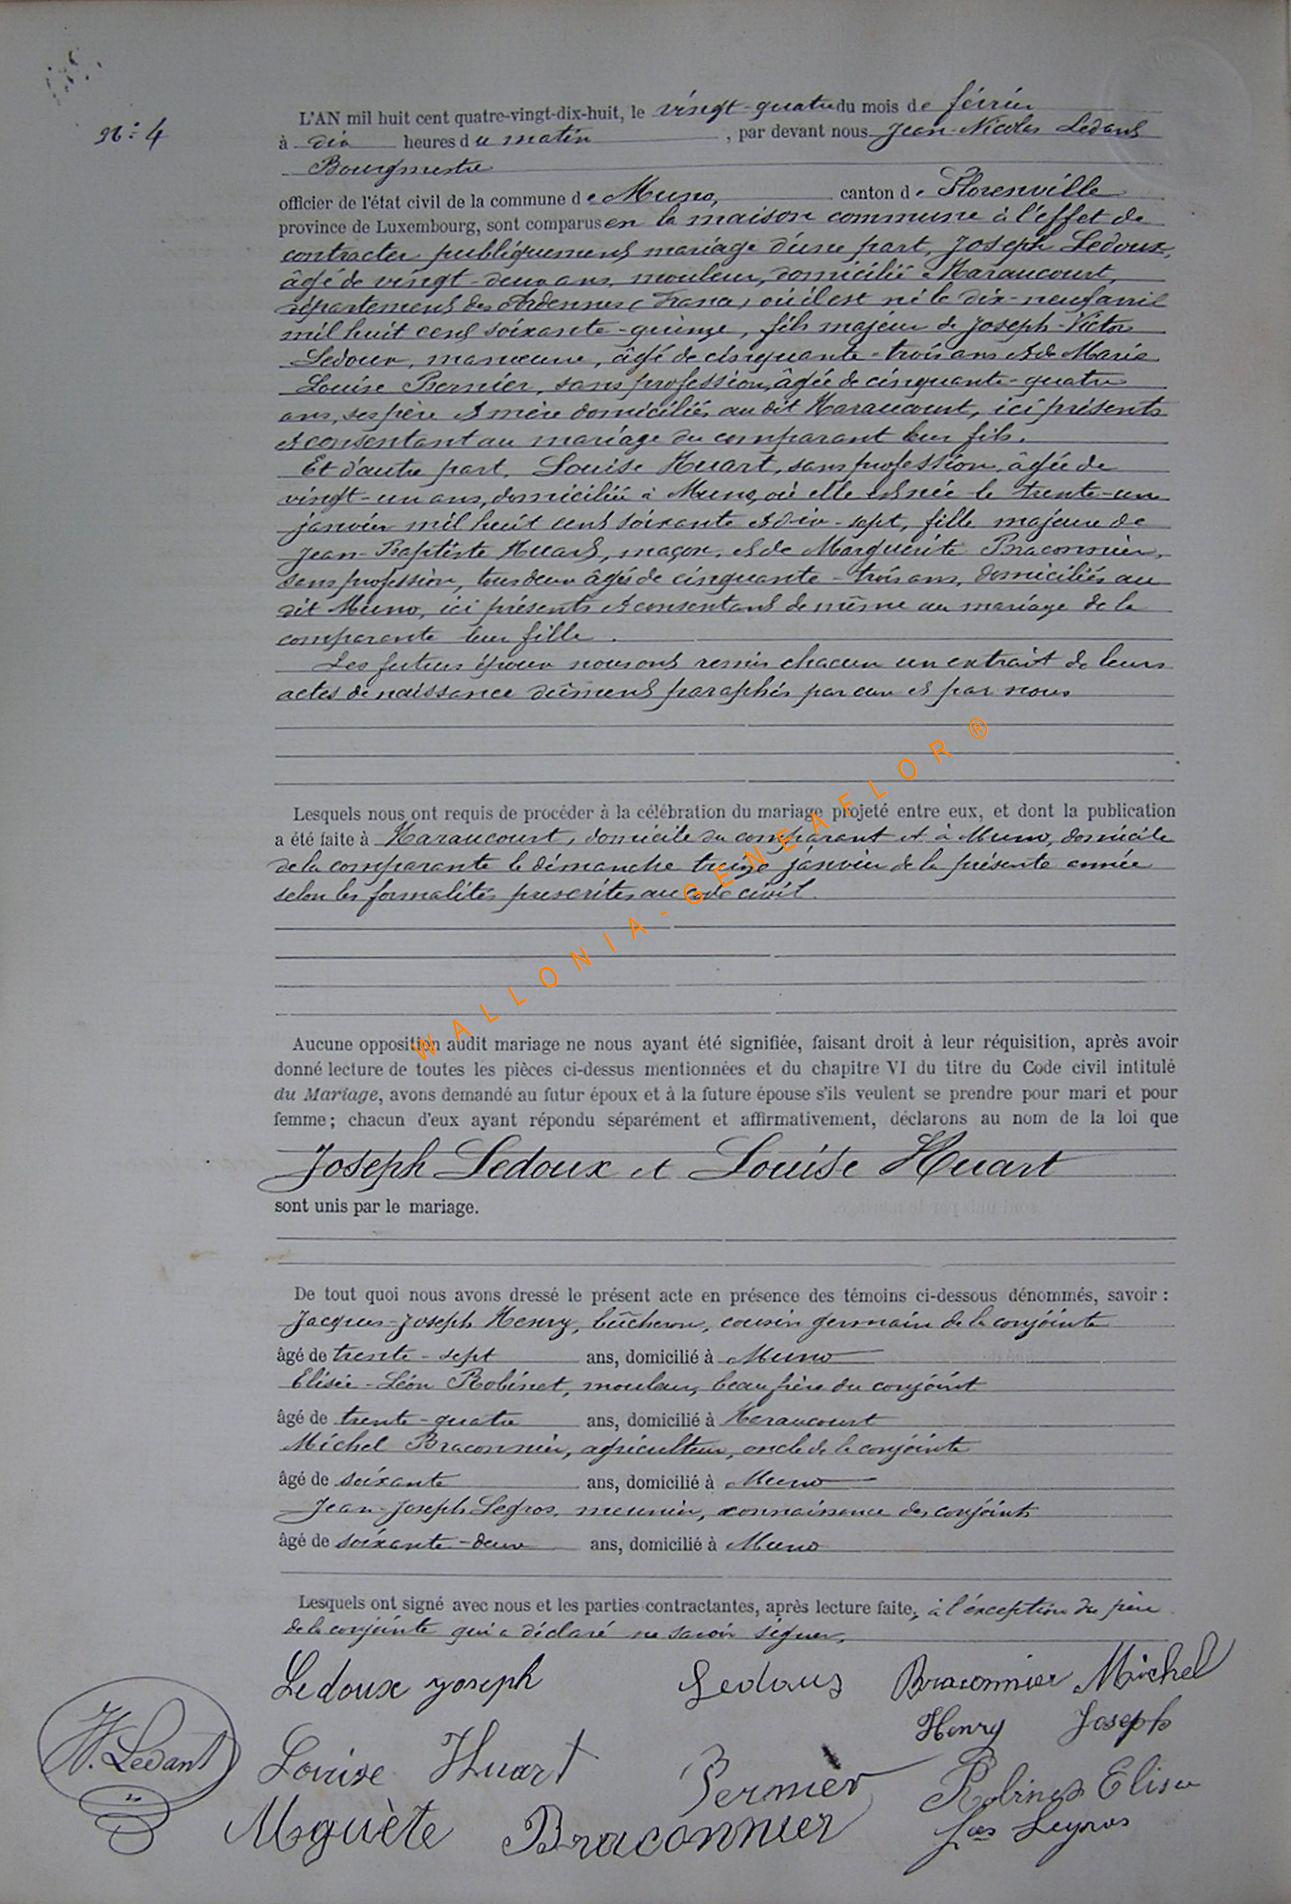 N° 4
L'AN mil huit cent quatre-vingt-dix-huit, le vingt-quatre du mois de février
à dix heures du matin, par devant nous Jean-Nicolas Ledant
Bourgmestre
officier de l'état civil de la commune de Muno, canton de Florenville
province de Luxembourg, sont comparus en la maison commune à l'effet de
contracter publiquement mariage d'une part, Joseph Ledoux,
âgé de vingt-deux ans, mouleur, domicilié à Haraucourt,
département des Ardennes (France) où il est né le dix-neuf avril
mil huit cent soixante-quinze, fils majeur de Joseph-Victor
Ledoux, manœuvre, âgé de cinquante-trois ans et de Marie
Louise Pernier, sans profession, âgée de cinquante-quatre
ans, ses père et mère domiciliés au dit Haraucourt, ici présents
et consentant au mariage du comparant leur fils.
Et d'autre part, Louise Huart, sans profession, âgée de
vingt-un ans, domiciliée à Muno, où elle est née le trente-un
janvier mil huit cent soixante et dix-sept, fille majeure de
Jean-Baptiste Huart, maçon, et de Marguerite Braconnier,
sans profession, tous deux âgés de cinquante-trois ans, domiciliés au
dit Muno, ici présents et consentant de même au mariage de la
comparante leur fille.
Les futurs époux nous ont remis chacun un extrait de leurs
actes de naissance dûment paraphés par eux et par nous
Lesquels nous ont requis de procéder à la célébration du mariage projeté entre eux, et dont la publication
a été faite à Haraucourt, domicile du comparant et à Muno, domicile
de la comparante le dimanche treize janvier de la présente année
selon les formalités prescrites au code civil.
WALLONIA-GENEAFLOR®
Aucune opposition audit mariage ne nous ayant été signifiée, faisant droit à leur réquisition, après avoir
donné lecture de toutes les pièces ci-dessus mentionnées et du chapitre VI du titre du Code civil intitulé
du Mariage, avons demandé au futur époux et à la future épouse s'ils veulent se prendre pour mari et pour
femme ; chacun d'eux ayant répondu séparément et affirmativement, déclarons au nom de la loi que
Joseph Ledoux et Louise Huart
sont unis par le mariage.
De tout quoi nous avons dressé le présent acte en présence des témoins ci-dessous dénommés, savoir :
Jacques-Joseph Henry, bûcheron, cousin germain de la conjointe
âgé de trente-sept ans, domicilié à Muno
Elisée-Léon Robinet, mouleur, beau frère du conjoint
âgé de trente-quatre ans, domicilié à Haraucourt
Michel Braconnier, agriculteur, oncle de la conjointe
âgé de soixante ans, domicilié à Muno
Jean-Joseph Legros, meunier, connaissance des conjoints
âgé de soixante-deux ans, domicilié à Muno
Lesquels ont signé avec nous et les parties contractantes, après lecture faite, à l'éxception du père
de la conjointe qui a déclaré ne savoir signer.
Ledoux joseph Ledoux Braconnier Michel
Henry Joseph
N. Ledant Louise Huart Pernier Robinet Elisée
Mguète Braconnier Legros